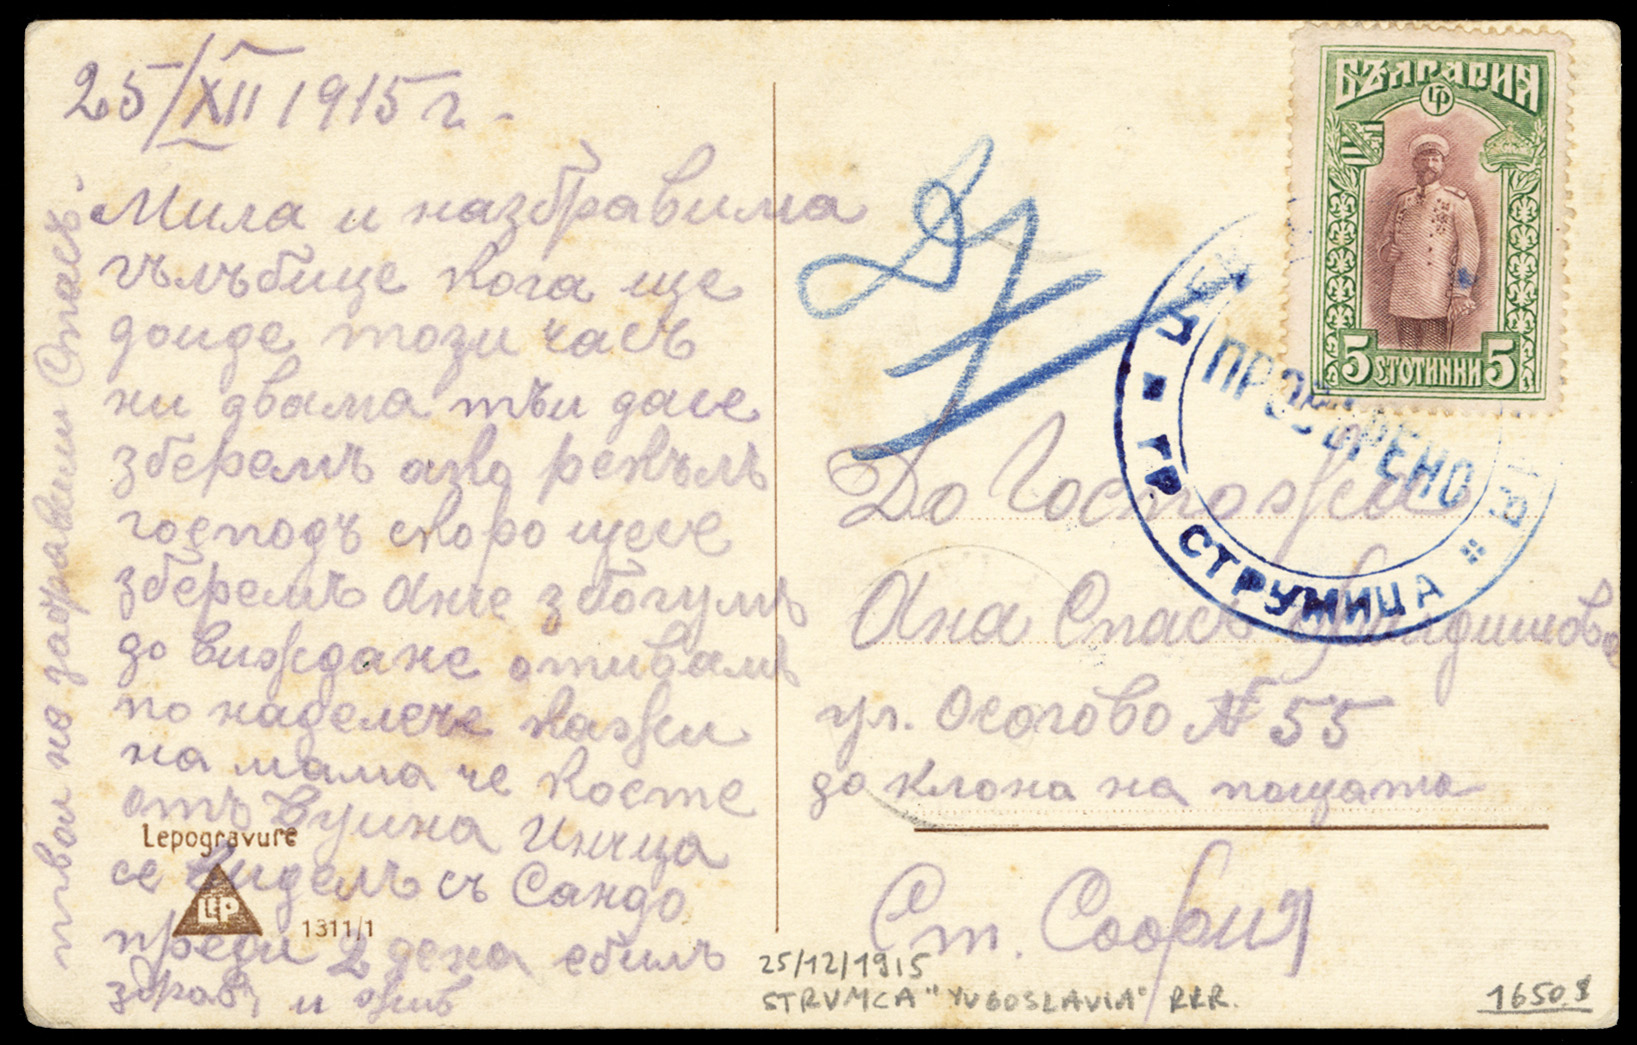 25/XII 1915 г.
Мила и наздравима
гълъбице кога ще
доиде този часъ
ни двама тъи дасе
зберемъ азво рекълъ
господъ скоро щесе
зберемъ Ане збогумъ
до виждане отивамъ
по наделече кажи
на мама че Косте
отъ Вуина Инчца
се виделъ съ Сандо
преди 2 дена ебилъ
здравъ и живъ
твои на здравим Спасъ
Lepogravure
LEP
1311/1
БЪЛГАРИЯ
5 СТОТИНКИ 5
ПРОВѢРЕНО
ГР СТРУМИЦА
До Госпожа
Ана Спасъ
ул. Осогово № 55
до клона на пощата
Ст. София
25/12/1915
STRVMCA "YUGOSLAVIA" RRR.
1650 $